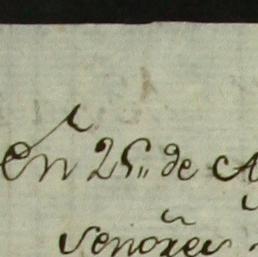 en 25,, de
señores